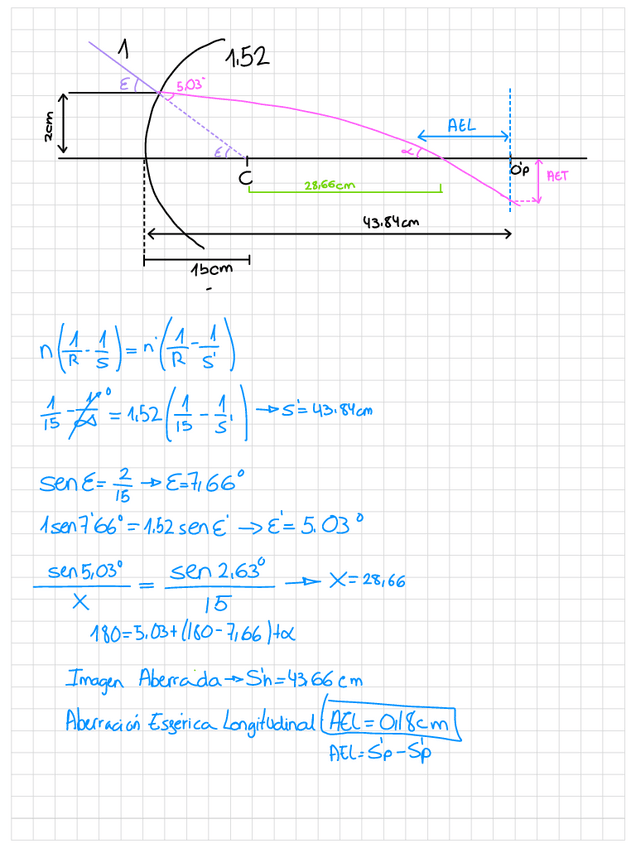 1
1,52
ε
5.03°
2cm
AEL
ε
α
C
O'p
AET
28,66cm
43.84cm
15cm
n(1/R - 1/S) = n'(1/R - 1/S')
1/15 - 1/∞ ⁰ = 1,52(1/15 - 1/S') → S' = 43.84cm
sen ε = 2/15 → ε = 7,66°
1 sen 7'66° = 1,52 sen ε' → ε' = 5.03°
sen 5,03°/X = sen 2,63°/15 → X = 28,66
180 = 5.03 + (180 - 7,66) + α
Imagen Aberrada → S'h = 43,66 cm
Aberración Esférica Longitudinal AEL = 0,18cm
AEL = S'p - S'p